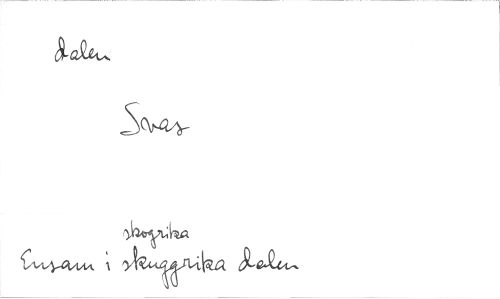 dalen
Svas
skogrika
Ensam i skuggrika dalen